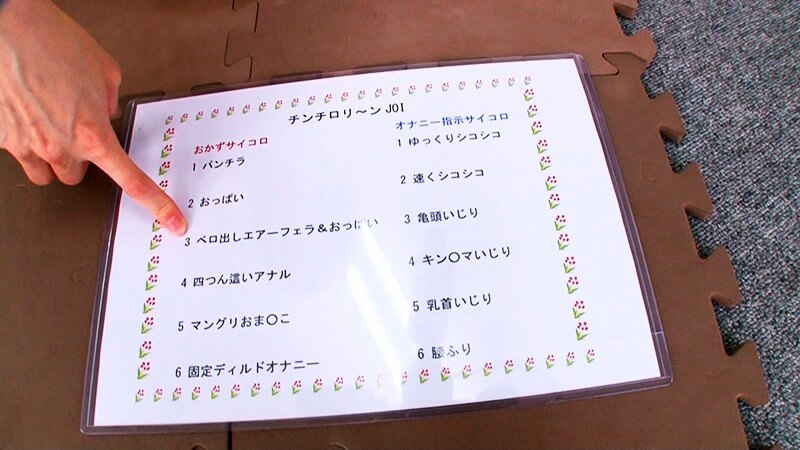 チンチロリ～ン JOI
おかずサイコロ
1 パンチラ
2 おっぱい
3 ベロ出しエアーフェラ＆おっぱい
4 四つん這いアナル
5 マングリおま〇こ
6 固定ディルドオナニー
オナニー指示サイコロ
1 ゆっくりシコシコ
2 速くシコシコ
3 亀頭いじり
4 キン〇マいじり
5 乳首いじり
6 腰ふり